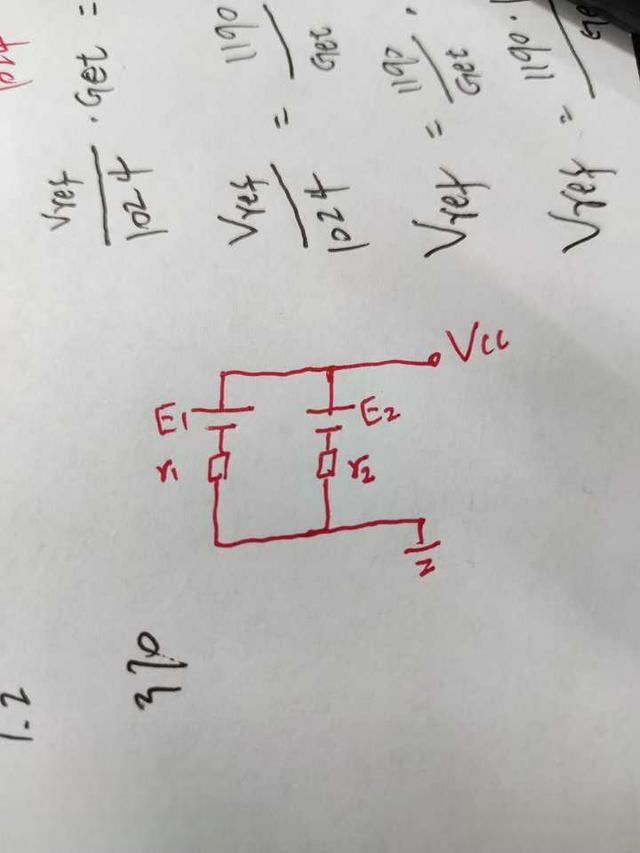 Vref/1024 · Get =
Vref/1024 = 1190/Get
Vref = 1190/Get ·
Vref = 1190 ·
Vcc
E1
E2
r1
r2
3%
1.2